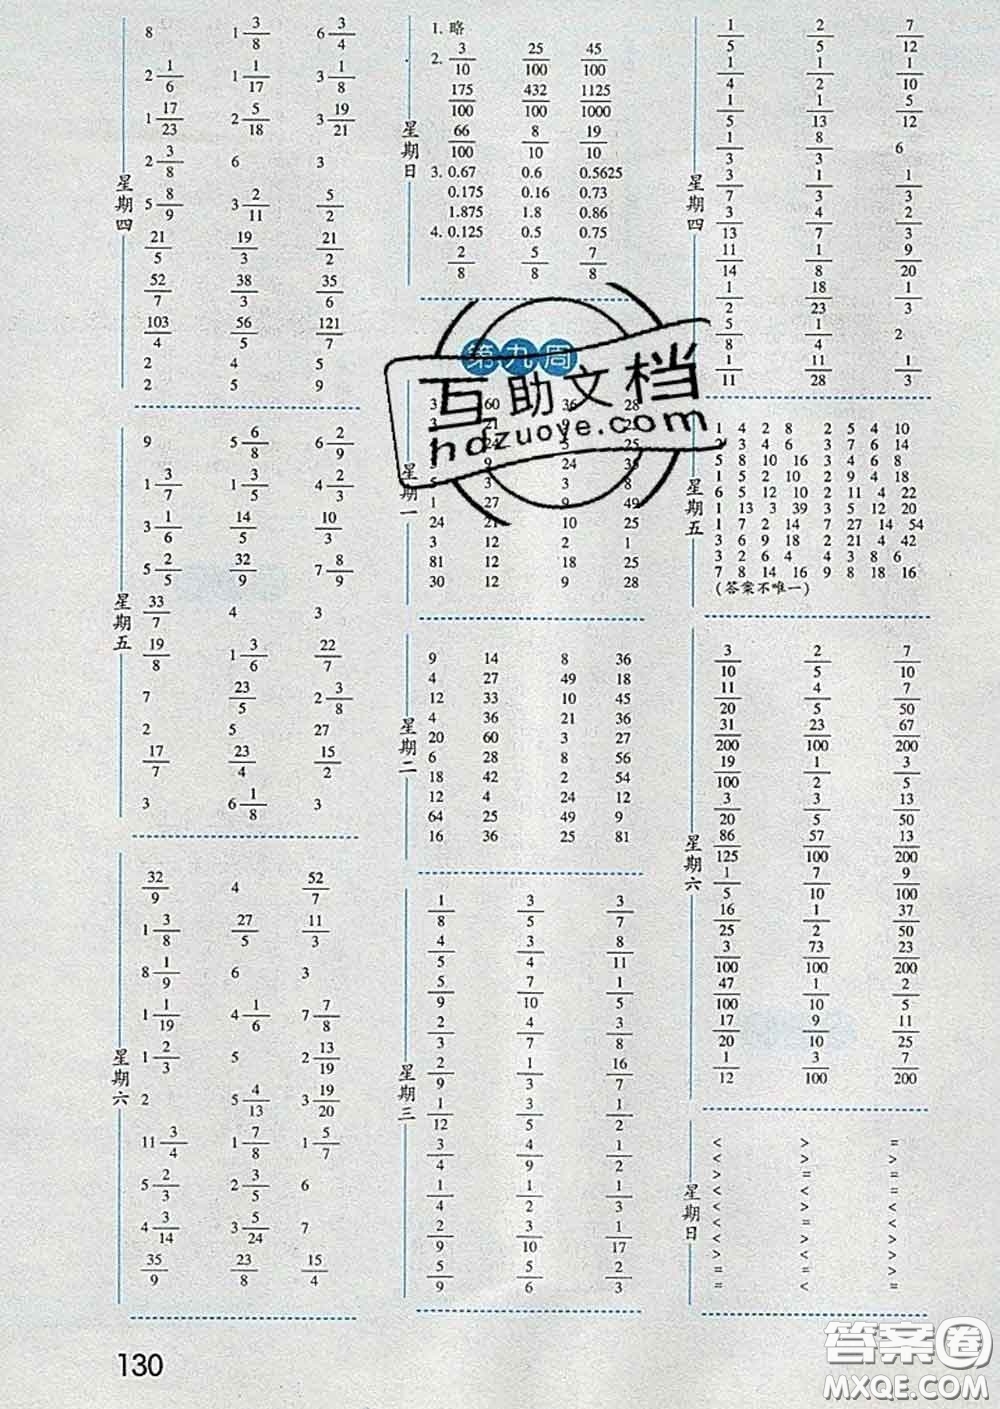 星期四
8 1 3/8 6 3/4
2 1/6 1 1/17 3 1/8
1 17/23 2 5/18 3 19/21
2 3/8 6 3
5 8/9 3 2/11 5/2
21/5 19/3 21/2
52/7 38/3 35/6
103/4 56/5 121/7
2 2 4
2 5 9
星期五
9 5 6/8 6 2/9
1 3/7 1 3/5 4 2/3
3 1/6 14/5 10/3
5 2/5 32/9 7 8/9
33/7 4 3
19/8 1 3/6 22/7
7 23/5 2 3/8
2 5 27
17/7 23/4 15/2
3 6 1/8 3
星期六
32/9 4 52/7
1 3/8 27/5 11/3
8 1/9 6 3
1 1/19 4 1/6 7 7/8
1 2/3 5 2 13/19
2 5 4/13 3 19/20
11 3/4 1 7/8 1 5/7
5 2/3 2 3/5 6
4 3/14 3 5/24 7
35/9 23/8 15/4
130
星期日
1. 略
2. 3/10 25/100 45/100
175/100 432/100 1125/1000
66/100 8/10 19/10
3. 0.67 0.6 0.5625
0.175 0.16 0.73
1.875 1.8 0.86
4. 0.125 0.5 0.75
2/8 5/8 7/8
第九周
互助文档
hdzuoye.com
星期一
3 60 36 28
21 9
24 5
9 24
3 3 8
1 27 9 49
24 21 10 25
3 12 2 1
81 12 18 18
30 12 9 28
星期二
9 14 8 36
4 27 49 18
12 33 10 45
4 36 21 36
20 60 3 27
6 28 8 56
18 42 2 54
12 4 24 12
64 25 49 9
16 36 25 81
星期三
1/8 3/5 3/7
4/5 3/4 8/11
5/9 7/10 1/5
2/3 4/7 3/8
2/9 1/3 16/7
1/12 3/5 1/2
3/4 4/9 1/2
1/4 1/2 3/4
2/9 3/10 1/17
5/9 5/6 2/3
星期四
1/5 2/5 7/12
1/4 1/2 1/10
1/5 1/13 5/12
1/3 8/3 6
3/7 1/3 1/3
3/13 4/7 2/3
11/14 1/8 9/20
1/2 18/23 1/3
5/8 1/4 2
1/11 11/28 1/3
星期五
1 4 2 8 2 5 4 10
2 3 4 6 3 7 6 14
5 8 10 16 3 4 6 8
1 5 2 10 2 9 4 18
6 5 12 10 2 11 4 22
1 13 3 39 3 5 12 20
1 7 2 14 7 27 14 54
3 6 9 18 2 21 4 42
3 2 6 4 4 3 8 6
7 8 14 16 9 8 18 16
(答案不唯一)
星期六
3/10 2/5 7/10
11/20 4/5 7/50
31/200 23/100 67/200
19/100 1/2 3/5
3/20 3/5 13/50
86/125 57/100 13/200
1/5 7/10 9/100
16/25 1/2 37/50
3/100 73/100 23/200
47/100 1/10 2/5
17/20 9/10 11/25
1/12 3/100 7/200
星期日
< > =
< > >
> = =
< < =
> > <
< = >
< > <
> > <
= = >
= < =
答案圈
MXQE.COM